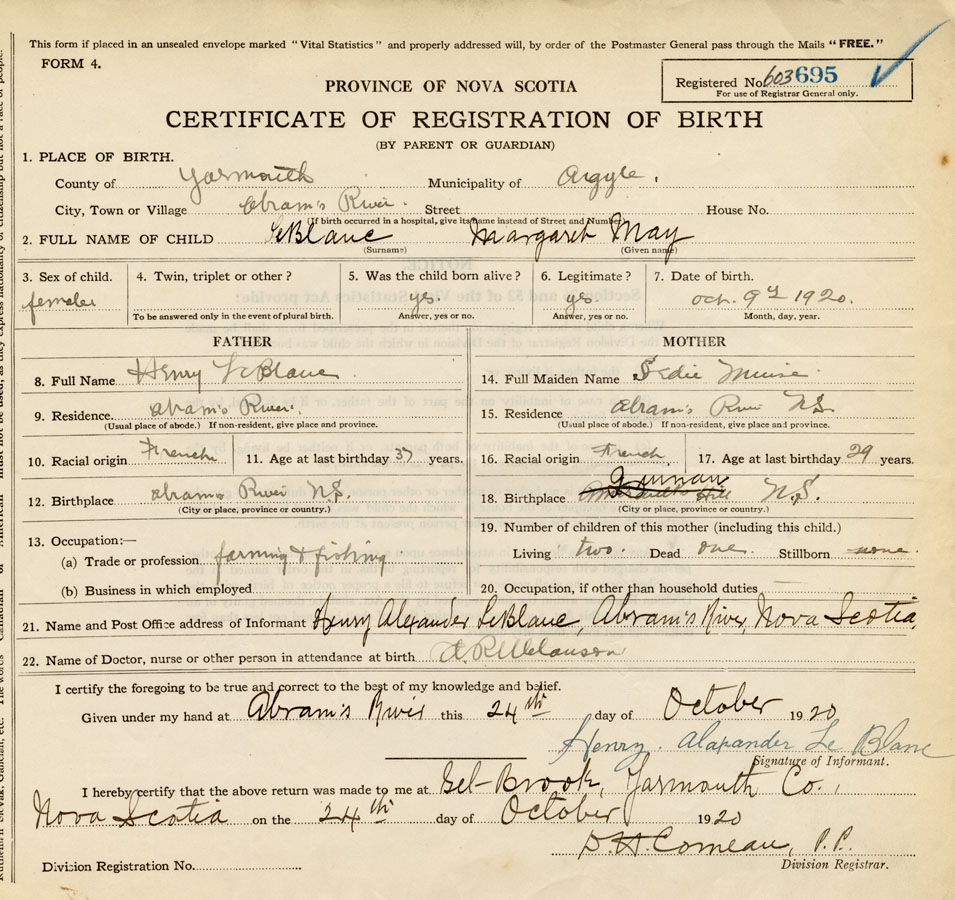 This form if placed in an unsealed envelope marked "Vital Statistics" and properly addressed will, by order of the Postmaster General pass through the Mails "FREE."
FORM 4.
Registered No. 603695
For use of Registrar General only.
PROVINCE OF NOVA SCOTIA
CERTIFICATE OF REGISTRATION OF BIRTH
(BY PARENT OR GUARDIAN)
1. PLACE OF BIRTH.
County of Yarmouth Municipality of Argyle.
City, Town or Village Abram's River. Street House No.
(If birth occurred in a hospital, give its name instead of Street and Number)
2. FULL NAME OF CHILD LeBlanc Margaret May
(Surname) (Given name)
3. Sex of child. 4. Twin, triplet or other? 5. Was the child born alive? 6. Legitimate? 7. Date of birth.
female yes. yes oct. 9th 1920.
To be answered only in the event of plural birth. Answer, yes or no. Answer, yes or no. Month, day, year.
FATHER MOTHER
8. Full Name Henry LeBlanc
9. Residence. Abram's River.
(Usual place of abode.) If non-resident, give place and province.
10. Racial origin French 11. Age at last birthday 37 years.
12. Birthplace Abram's River N.S.
(City or place, province or country.)
13. Occupation:—
(a) Trade or profession farming & fishing
(b) Business in which employed
14. Full Maiden Name Sedie Muise
15. Residence Abram's River N.S.
(Usual place of abode.) If non-resident, give place and province.
16. Racial origin French. 17. Age at last birthday 29 years.
18. Birthplace Hill N.S.
(City or place, province or country.)
19. Number of children of this mother (including this child.)
Living two. Dead one. Stillborn none.
20. Occupation, if other than household duties
21. Name and Post Office address of Informant Henry Alexander LeBlanc, Abram's River, Nova Scotia
22. Name of Doctor, nurse or other person in attendance at birth A. R. Melanson
I certify the foregoing to be true and correct to the best of my knowledge and belief.
Given under my hand at Abram's River this 24th day of October 1920
Henry. Alaxander Le Blanc
Signature of Informant.
I hereby certify that the above return was made to me at Eel-Brook, Yarmouth Co.,
Nova Scotia on the 24th day of October 1920
D. H. Comeau, P.P.
Division Registration No. Division Registrar.